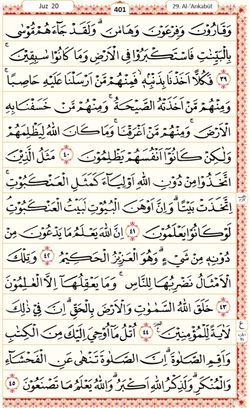 Juz 20
401
29. Al-'Ankabūt
وَقَارُوْنَ وَفِرْعَوْنَ وَهَامٰنَۗ وَلَقَدْ جَاۤءَهُمْ مُّوْسٰى
بِالْبَيِّنٰتِ فَاسْتَكْبَرُوْا فِى الْاَرْضِ وَمَا كَانُوْا سٰبِقِيْنَ ۚ
٣٩ فَكُلًّا اَخَذْنَا بِذَنْۢبِهٖۙ فَمِنْهُمْ مَّنْ اَرْسَلْنَا عَلَيْهِ حَاصِبًا ۚ
وَمِنْهُمْ مَّنْ اَخَذَتْهُ الصَّيْحَةُ ۚ وَمِنْهُمْ مَّنْ خَسَفْنَا بِهِ
الْاَرْضَ ۚ وَمِنْهُمْ مَّنْ اَغْرَقْنَا ۚ وَمَا كَانَ اللّٰهُ لِيَظْلِمَهُمْ
وَلٰكِنْ كَانُوْٓا اَنْفُسَهُمْ يَظْلِمُوْنَ ٤٠ مَثَلُ الَّذِيْنَ
اتَّخَذُوْا مِنْ دُوْنِ اللّٰهِ اَوْلِيَاۤءَ كَمَثَلِ الْعَنْكَبُوْتِۚ
اِتَّخَذَتْ بَيْتًاۗ وَاِنَّ اَوْهَنَ الْبُيُوْتِ لَبَيْتُ الْعَنْكَبُوْتِۘ
لَوْ كَانُوْا يَعْلَمُوْنَ ٤١ اِنَّ اللّٰهَ يَعْلَمُ مَا يَدْعُوْنَ مِنْ
دُوْنِهٖ مِنْ شَيْءٍۗ وَهُوَ الْعَزِيْزُ الْحَكِيْمُ ٤٢ وَتِلْكَ
الْاَمْثَالُ نَضْرِبُهَا لِلنَّاسِۚ وَمَا يَعْقِلُهَآ اِلَّا الْعٰلِمُوْنَ
٤٣ خَلَقَ اللّٰهُ السَّمٰوٰتِ وَالْاَرْضَ بِالْحَقِّۗ اِنَّ فِيْ ذٰلِكَ
لَاٰيَةً لِّلْمُؤْمِنِيْنَ ٤٤ اُتْلُ مَآ اُوْحِيَ اِلَيْكَ مِنَ الْكِتٰبِ
وَاَقِمِ الصَّلٰوةَۗ اِنَّ الصَّلٰوةَ تَنْهٰى عَنِ الْفَحْشَاۤءِ
وَالْمُنْكَرِۗ وَلَذِكْرُ اللّٰهِ اَكْبَرُۗ وَاللّٰهُ يَعْلَمُ مَا تَصْنَعُوْنَ ٤٥